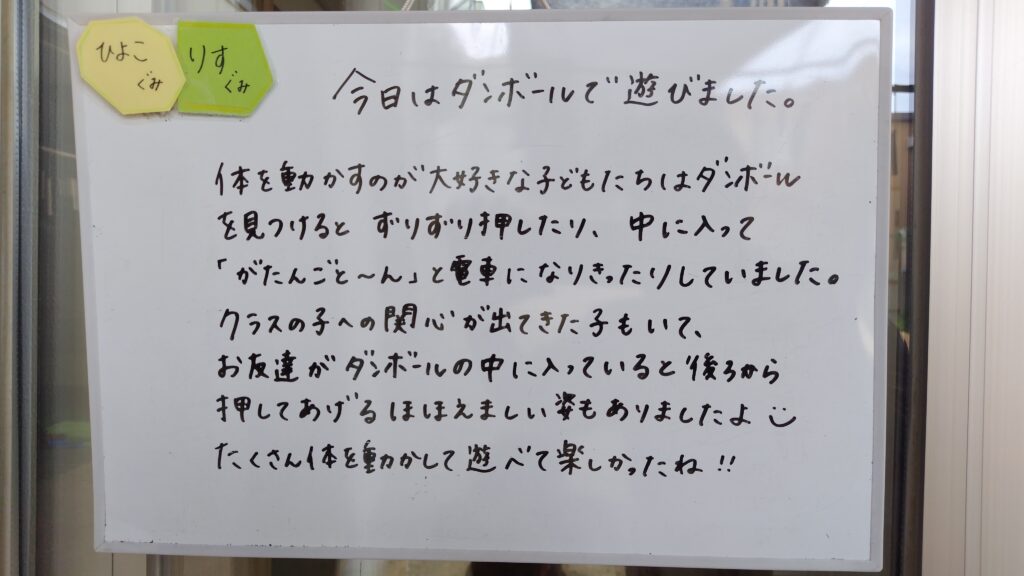 ひよこ
ぐみ
りす
ぐみ
今日はダンボールで遊びました。
体を動かすのが大好きな子どもたちはダンボール
を見つけると ずりずり押したり、中に入って
「がたんごと～ん」と電車になりきったりしていました。
クラスの子への関心が出てきた子もいて、
お友達がダンボールの中に入っていると後ろから
押してあげるほほえましい姿もありましたよ
たくさん体を動かして遊べて楽しかったね!!